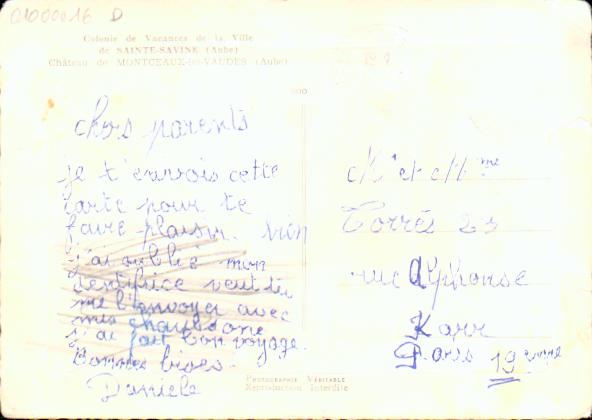 01000016 D
Colonie de Vacances de la Ville
de SAINTE-SAVINE (Aube)
Château de MONTCEAUX-les-VAUDES (Aube)
chers parents
je t'envois cette
carte pour te
faire plaisir.
j'ai oublié mon
dentifrice veut tu
me l'envoyer avec
mes chaussons
j'ai fait bon voyage.
Bonnes bises.
Daniele
Mr et Mme
Torrés 23
rue Alphonse
Karr
Paris 19eme
PHOTOGRAPHIE VÉRITABLE
Reproduction Interdite